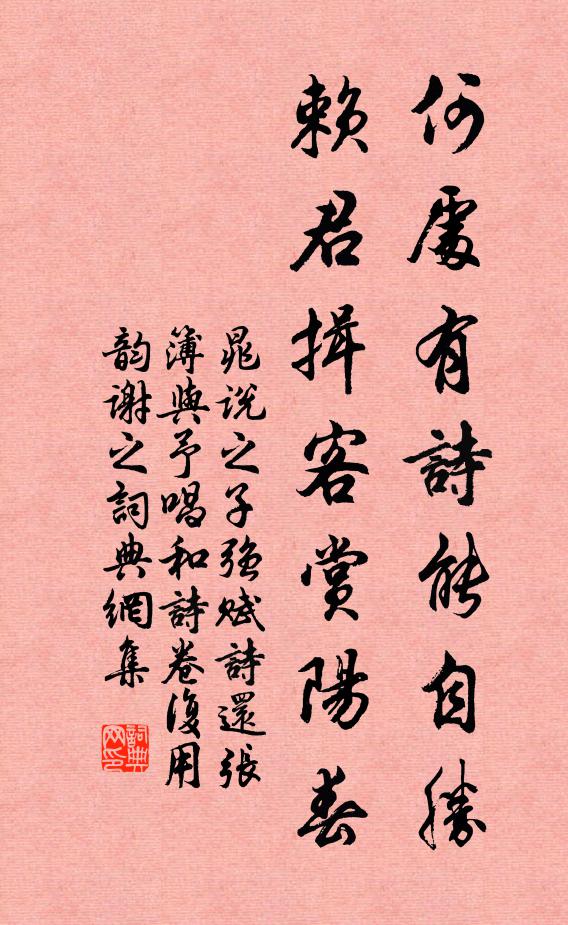 何處有詩能自勝
賴君揖客賞陽春
晁說之子強賦詩還張
簿與予唱和詩卷復用
韵謝之詞典網集
詞典
网印